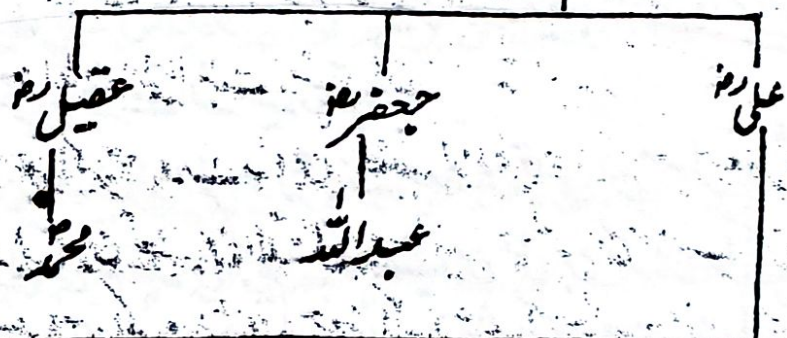 علی رضہ جعفر رضہ عقیل رضہ
عبداللہ محمد